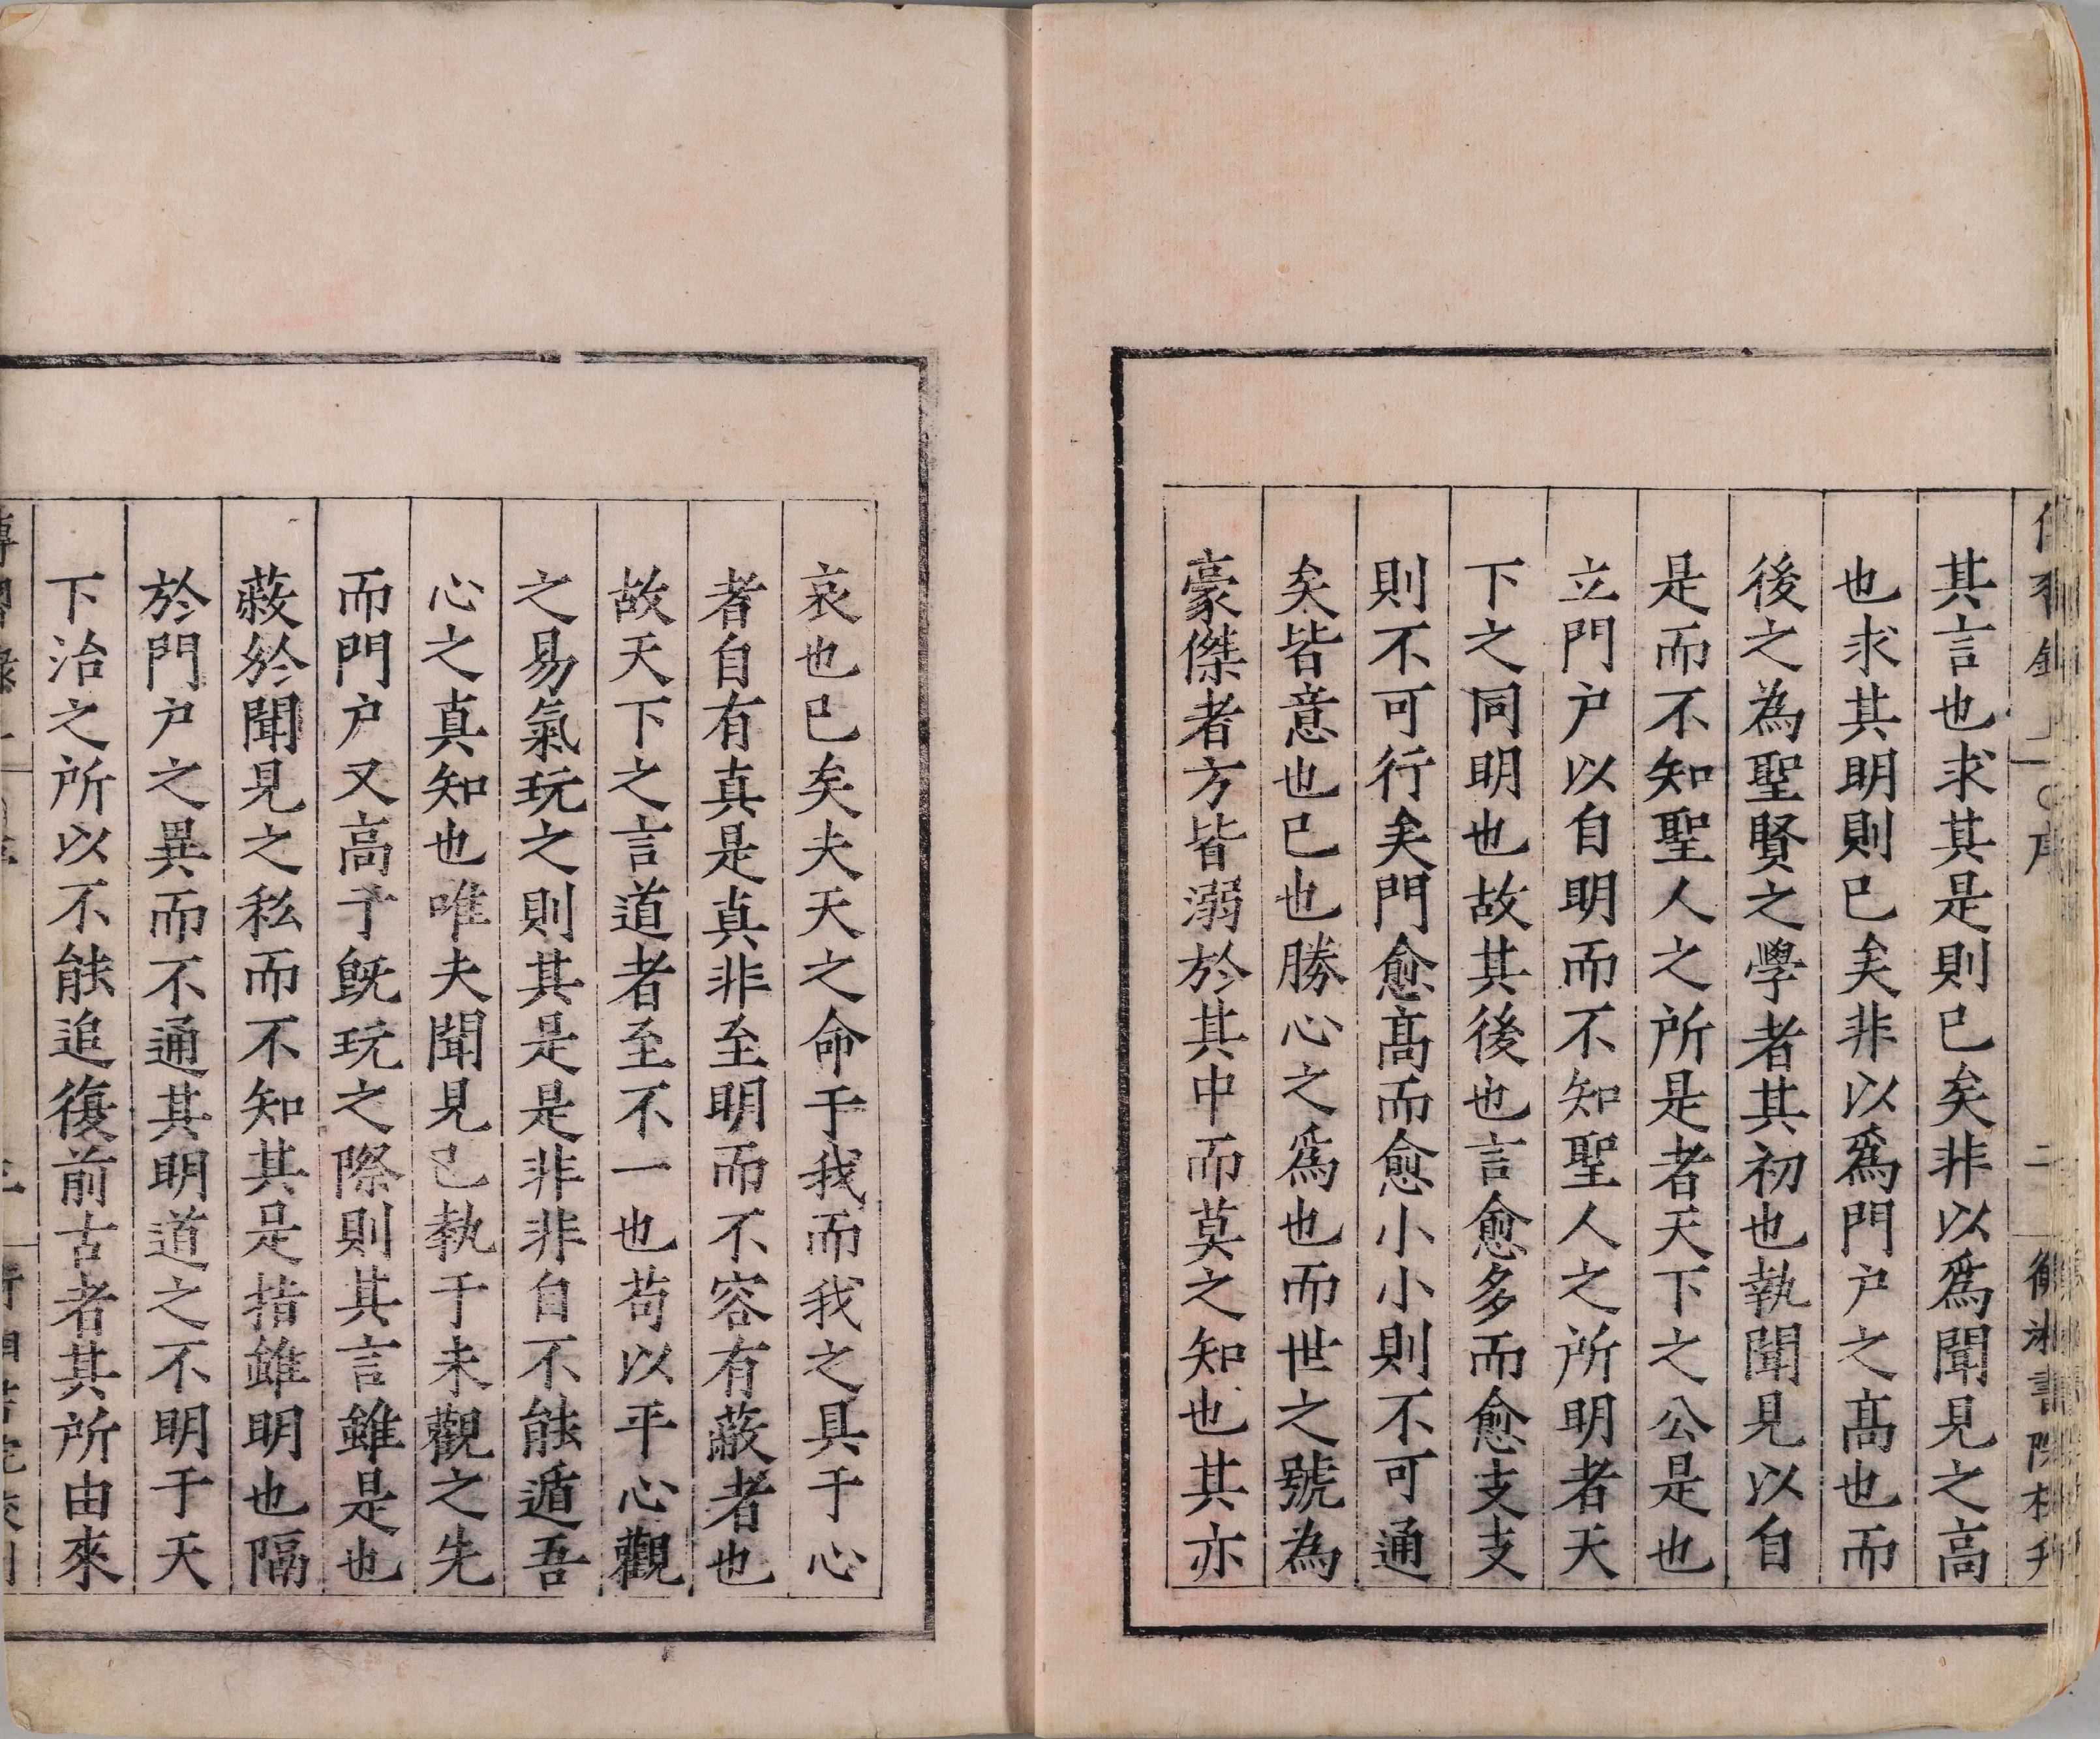 其言也求其是則已矣非以爲聞見之高
也求其明則已矣非以爲門户之高也而
後之為聖賢之學者其初也執聞見以自
是而不知聖人之所是者天下之公是也
立門户以自明而不知聖人之所明者天
下之同明也故其後也言愈多而愈支支
則不可行矣門愈高而愈小小則不可通
矣皆意也已也勝心之爲也而世之號為
豪傑者方皆溺於其中而莫之知也其亦
哀也已矣夫天之命于我而我之具于心
者自有真是真非至明而不容有蔽者也
故天下之言道者至不一也苟以平心觀
之易氣玩之則其是是非非自不能遁吾
心之真知也唯夫聞見已執于未觀之先
而門户又高于既玩之際則其言雖是也
蔽於聞見之私而不知其是指雖明也隔
於門户之異而不通其明道之不明于天
下治之所以不能追復前古者其所由來